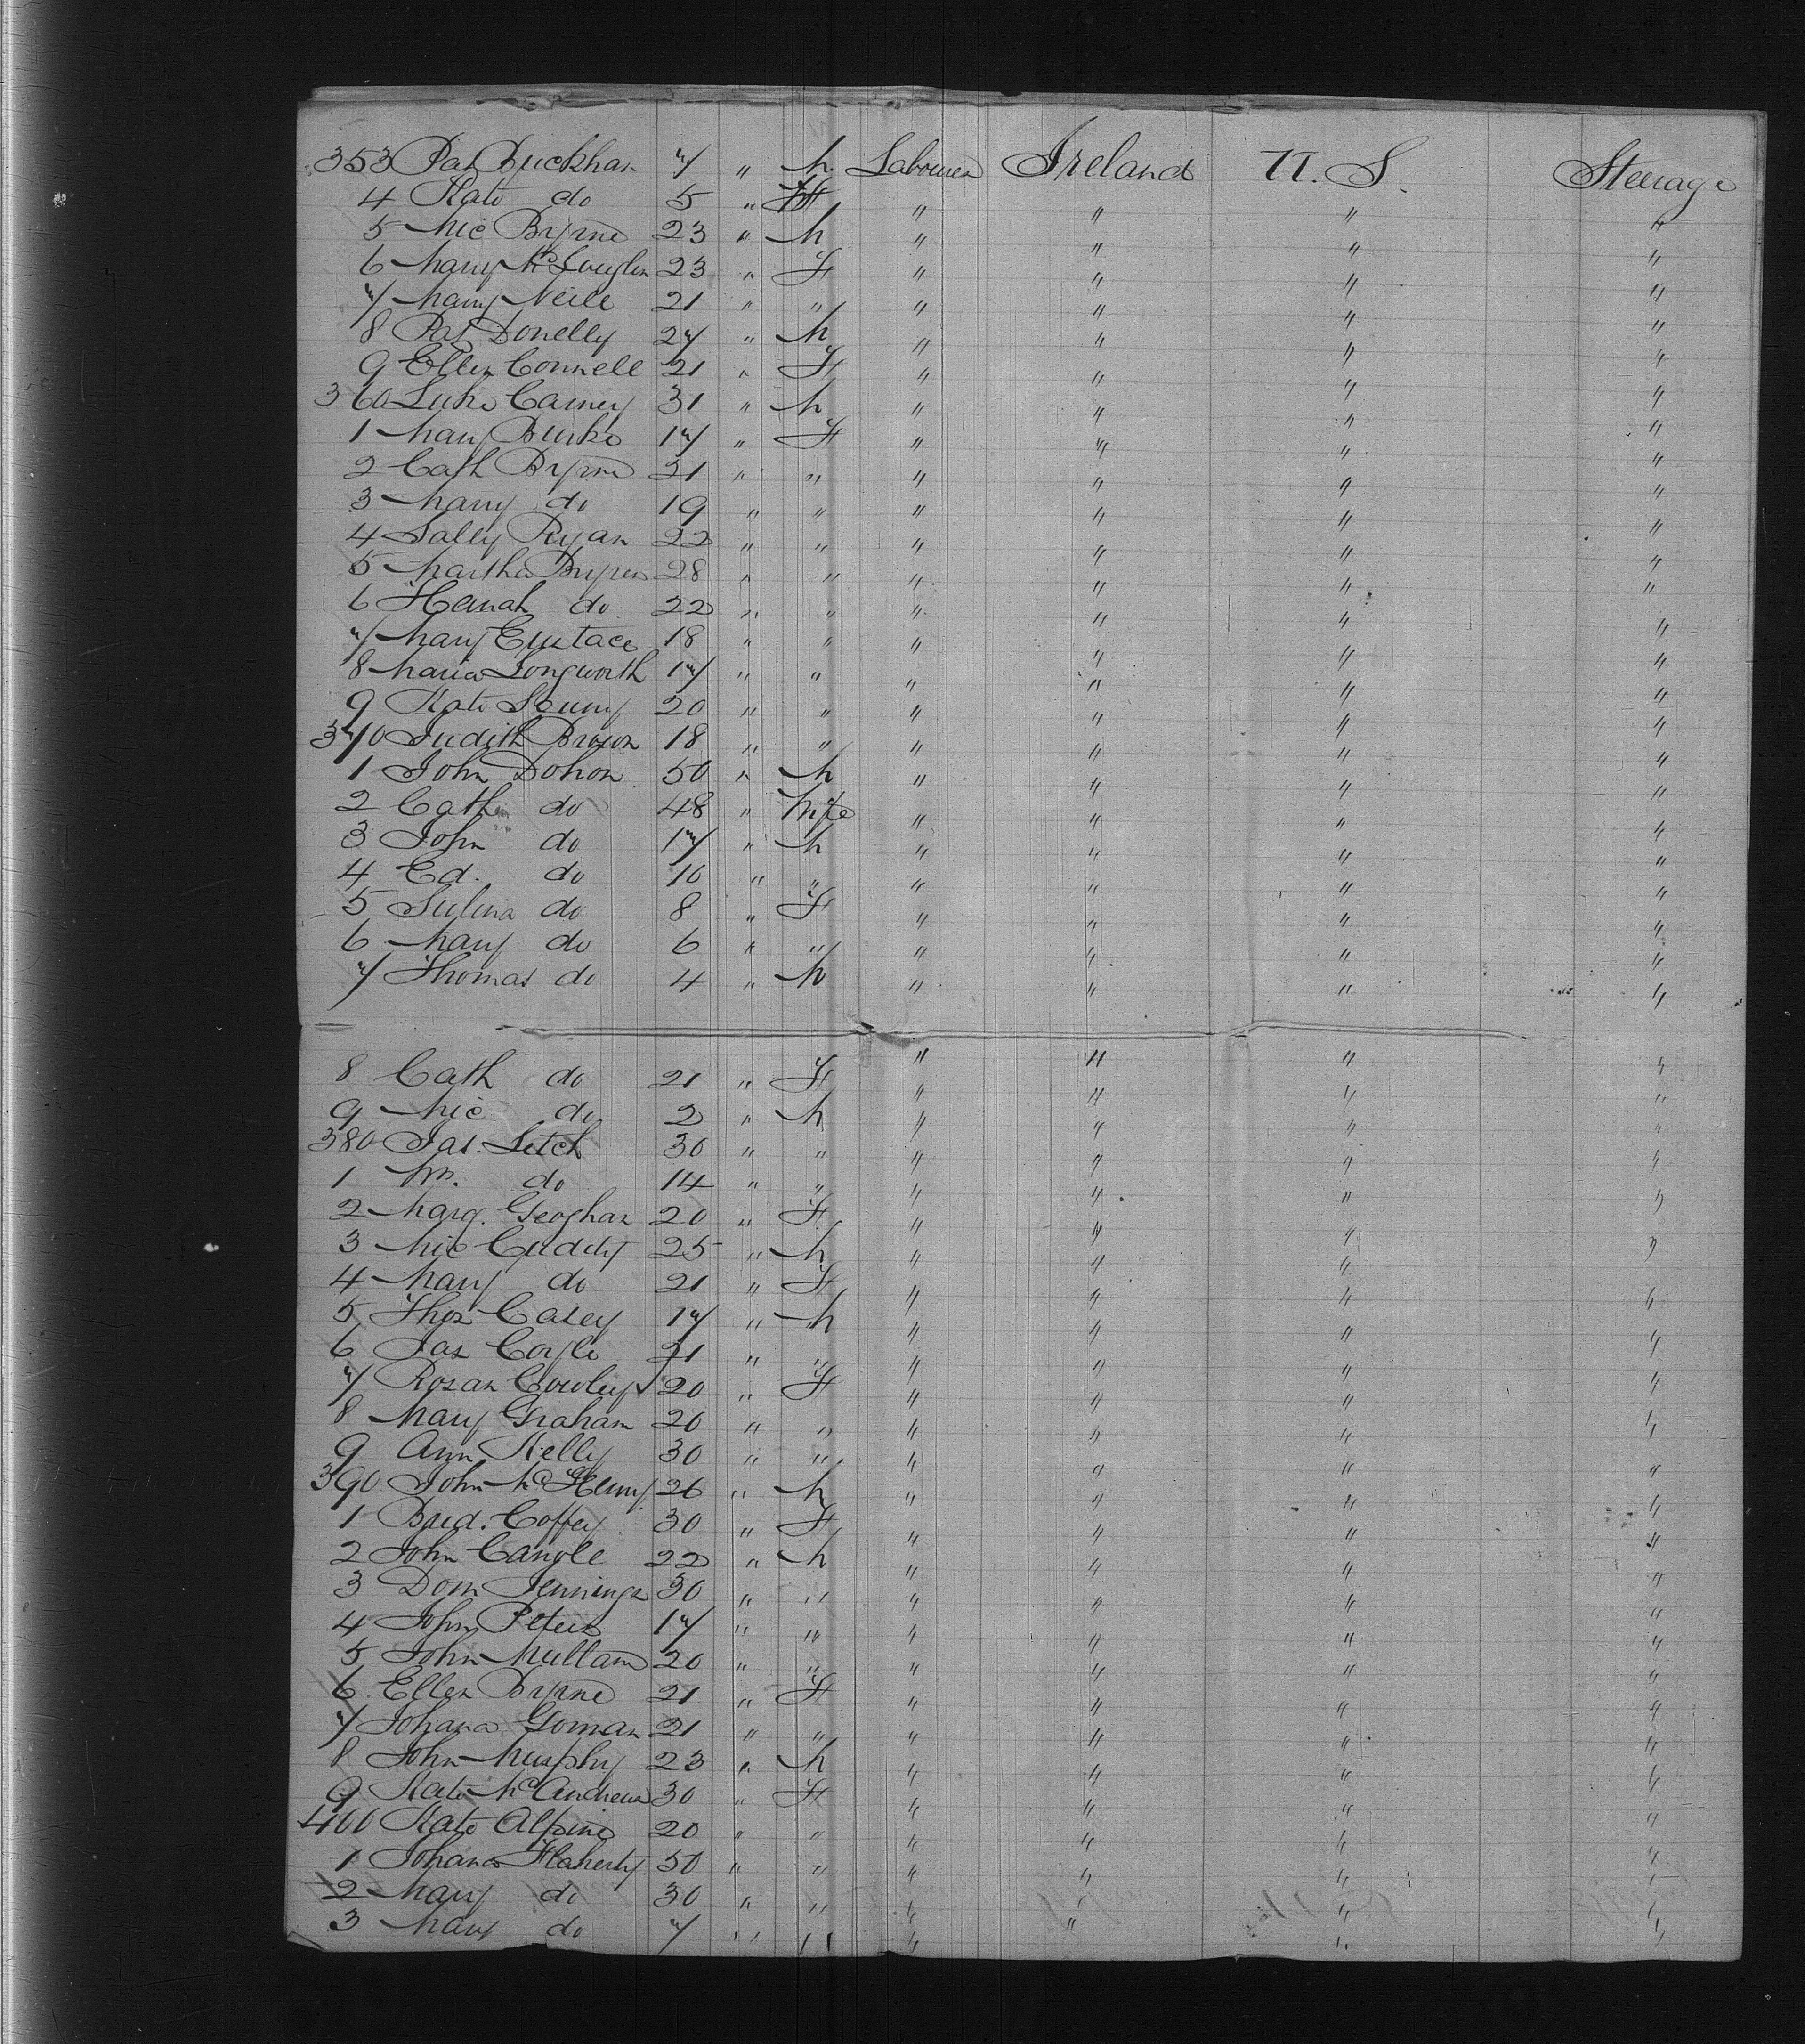 353 Pat Buckhan 7 " M. Labourer Ireland U. S. Steerage
4 Kate do 5 " F " " " "
5 Mic Byrne 23 " M " " " "
6 Mary McLoughlin 23 " F " " " "
7 Mary Neile 21 " " " " " "
8 Pat Donelly 27 " M " " " "
9 Ellen Connell 21 " F " " " "
360 Luke Carney 31 " M " " " "
1 Mary Burke 17 " F " " " "
2 Cath Byrne 21 " " " " " "
3 Mary do 19 " " " " " "
4 Sally Ryan 22 " " " " " "
5 Martha 28 " " " " " "
6 Hanah do 22 " " " " " "
7 Mary Eustace 18 " " " " " "
8 Maria Longworth 17 " " " " " "
9 Kate 20 " " " " " "
370 Judith Brown 18 " " " " " "
1 John Dohon 50 " M " " " "
2 Cath do 48 " Wife " " " "
3 John do 17 " M " " " "
4 Ed. do 10 " " " " " "
5 Julina do 8 " F " " " "
6 Mary do 6 " " " " " "
7 Thomas do 4 " M " " " "
8 Cath do 21 " F " " " "
9 Mic do 2 " M " " " "
380 Jas. Letch 30 " " " " " "
1 Wm. do 14 " " " " " "
2 Marg. Geoghan 20 " F " " " "
3 Mic Cuddy 25 " M " " " "
4 Mary do 21 " F " " " "
5 Thos Casey 17 " M " " " "
6 Jas Coyle 21 " " " " " "
7 Rosan Cowley 20 " F " " " "
8 Mary Graham 20 " " " " " "
9 Ann Kelly 30 " " " " " "
390 John McHenry 26 " M " " " "
1 Brid. Coffey 30 " F " " " "
2 John Cangle 22 " M " " " "
3 Dom Jennings 30 " " " " " "
4 John Peters 17 " " " " " "
5 John Mullam 20 " " " " " "
6 Ellen Byrne 21 " F " " " "
7 Johana Gorman 21 " " " " " "
8 John Murphy 23 " M " " " "
9 Kate McAndrew 30 " F " " " "
400 Kate Alpine 20 " " " " " "
1 Johana Flaherty 50 " " " " " "
2 Mary do 30 " " " " " "
3 Mary do 7 " " " " " "